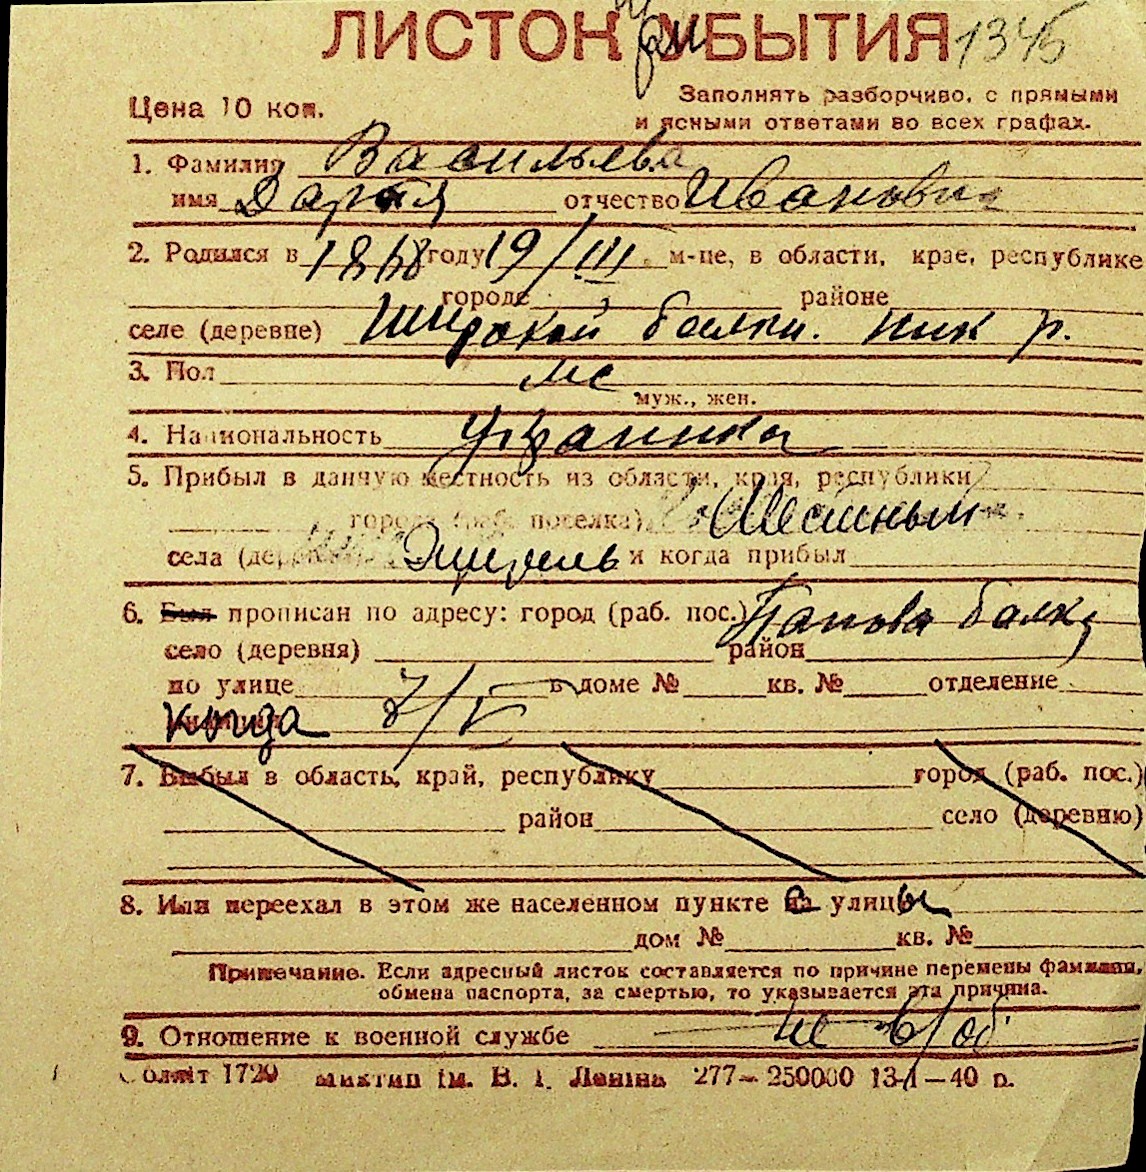 ЛИСТОК ПРИБЫТИЯ 1345
Цена 10 коп.
Заполнять разборчиво, с прямыми
и ясными ответами во всех графах.
1. Фамилия Васильева
имя Дарья отчество Ивановна
2. Родился в 1868 году 19/III м-це, в области, крае, республике
городе районе
селе (деревне) Широкой балки. Ник р.
3. Пол
муж., жен.
4. Национальность Украинка
5. Прибыл в данную местность из области, края, республики
города (раб. поселка)
села (де и когда прибыл
6. Был прописан по адресу: город (раб. пос.) Попова балка
село (деревня) район
по улице 7/V в доме № кв. № отделение
когда
7. Выбыл в область, край, республику город (раб. пос.)
район село (деревню)
8. Или переехал в этом же населенном пункте с улицы
дом № кв. №
Примечание. Если адресный листок составляется по причине перемены фамилии,
обмена паспорта, за смертью, то указывается эта причина.
9. Отношение к военной службе не в/об
Обліт 1720 ім. В. І. Леніна 277—250000 13-I—40 р.